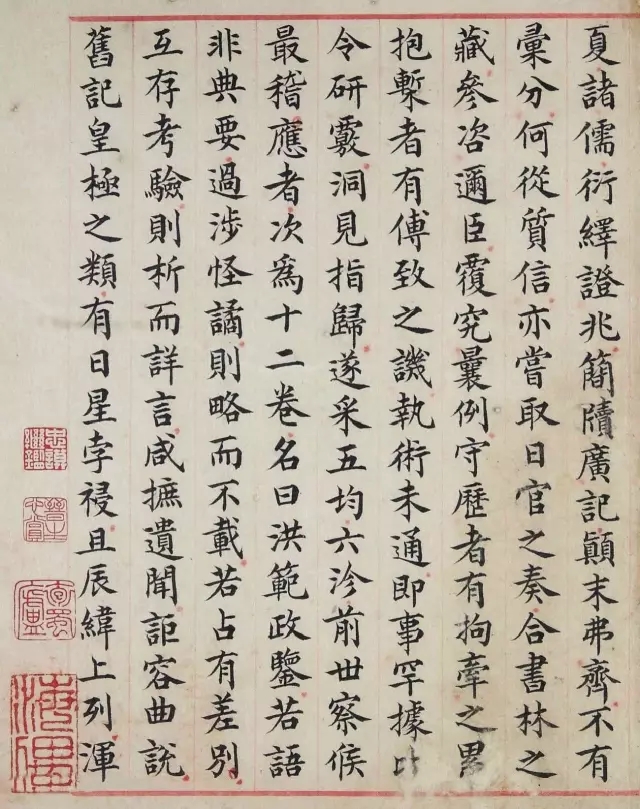 夏諸儒衍繹證兆簡牘廣記顛末弗齊不有
彙分何從質信亦嘗取日官之奏合書林之
藏參咨邇臣覆究曩例守歷者有拘牽之累
抱槧者有傅致之譏執術未通即事罕據比
令研覈洞見指歸遂采五均六沴前世察候
最稽應者次為十二卷名曰洪範政鑒若語
非典要過涉怪譎則略而不載若占有差別
互存考驗則析而詳言咸摭遺聞詎容曲說
舊記皇極之類有日星孛祲且辰緯上列渾